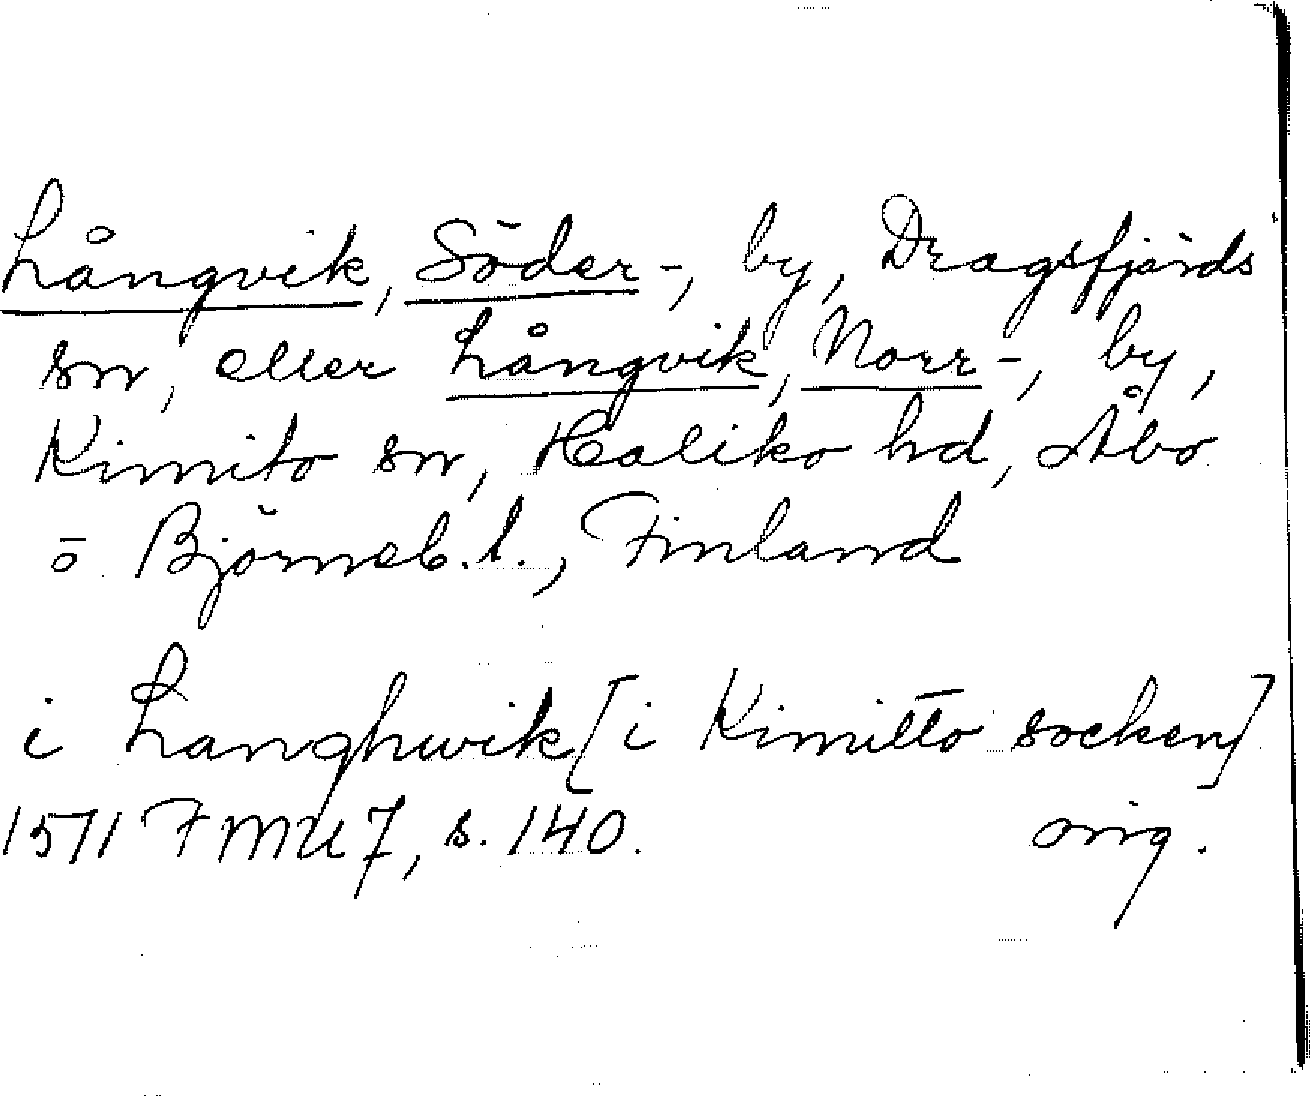 Långvik, Söder-, by, Dragsfjärds
sn, eller Långvik, Norr-, by,
Kimito sn, Haliko hd, Åbo
o. Björneb. l., Finland
i Langhwik [i Kimitto socken]
1571 FMU 7, s. 140. orig.